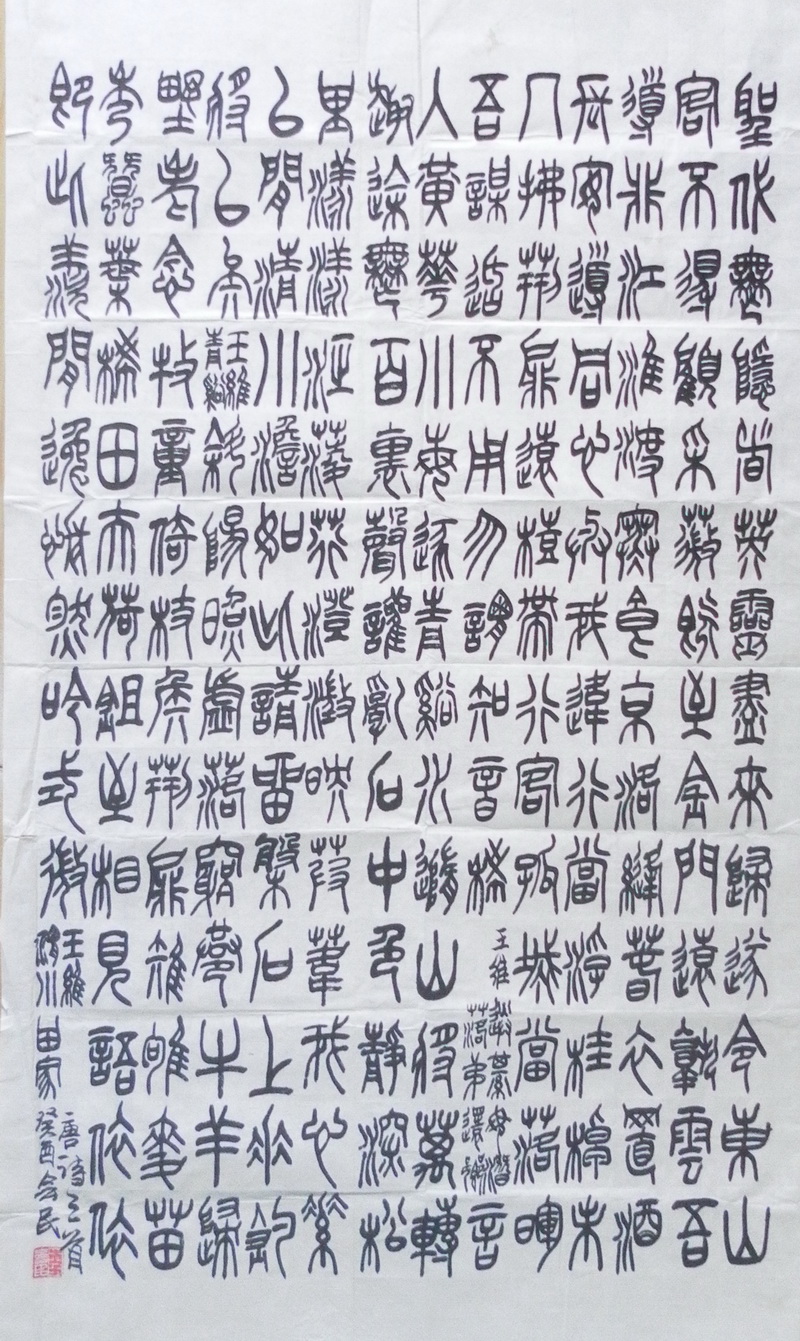 聖代無隱者英靈盡來歸遂令東山
客不得顧采薇既至金門遠孰雲吾
道非江淮渡寒食京洛縫春衣置酒
長安道同心與我違行當浮桂棹未
幾拂荊扉遠樹帶行客孤城當落暉
吾謀適不用勿謂知音稀 王維 送綦毋潛落第還鄉 言
入黃花川每逐青谿水隨山將萬轉
趣途無百裏聲喧亂石中色靜深松
里漾漾泛菱荇澄澄映葭葦我心素
已閒清川澹如此請留盤石上垂釣
將已矣 王維青谿 斜陽照墟落窮巷牛羊歸
野老念牧童倚杖候荊扉雉雊麥苗
秀蠶葉稀田夫荷鋤至相見語依依
即此羨閒逸悵然吟式微 王維渭川田家
唐詩三首
癸酉